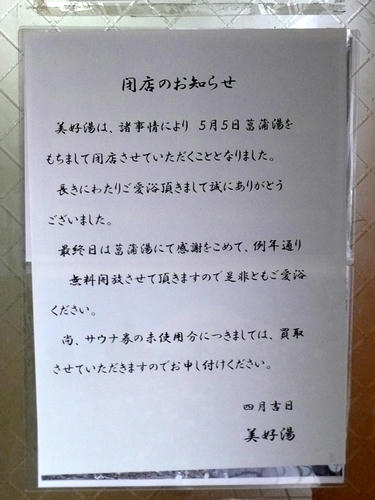 閉店のお知らせ
美好湯は、諸事情により 5月5日菖蒲湯を
もちまして閉店させていただくこととなりました。
長きにわたりご愛浴頂きまして誠にありがとう
ございました。
最終日は菖蒲湯にて感謝をこめて、例年通り
無料開放させて頂きますので是非ともご愛浴
ください。
尚、サウナ券の未使用分につきましては、買取
させていただきますのでお申し付けください。
四月吉日
美好湯